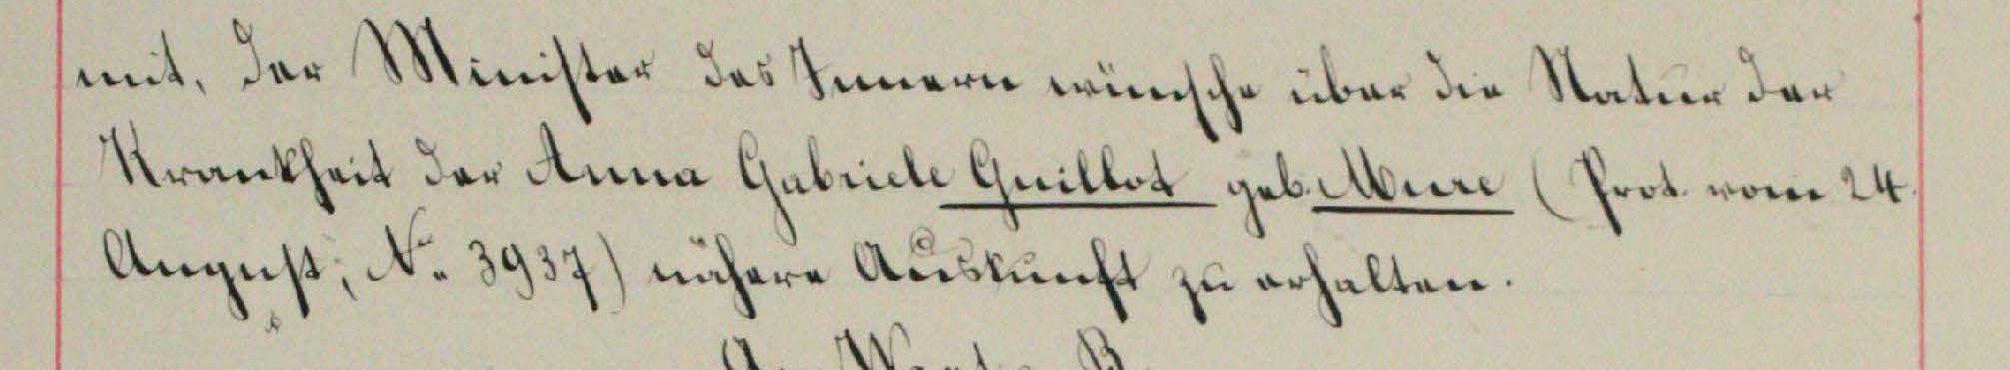 mit, der Minister des Innern wünsche über die Natur der
Krankheit der Anna Gabriele Guillot geb. Mure (Prot. vom 24.
August, N. 3937) nähere Auskunft zu erhalten.